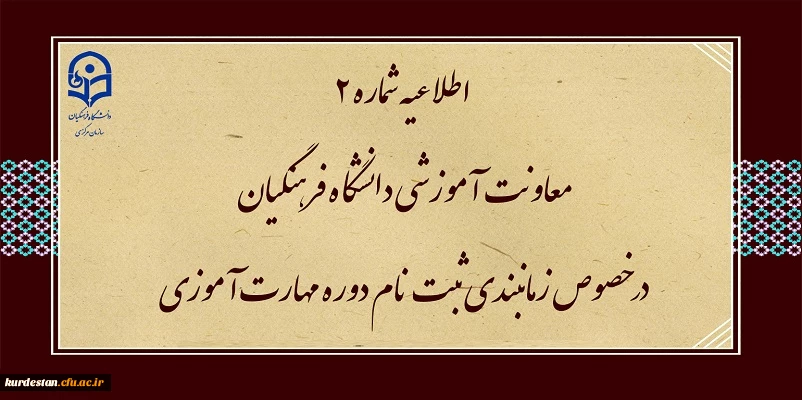 اطلاعیه شماره ۲
دانشگاه فرهنگیان
سازمان مرکزی
معاونت آموزشی دانشگاه فرهنگیان
در خصوص زمانبندی ثبت نام دوره مهارت آموزی
kurdestan.cfu.ac.ir